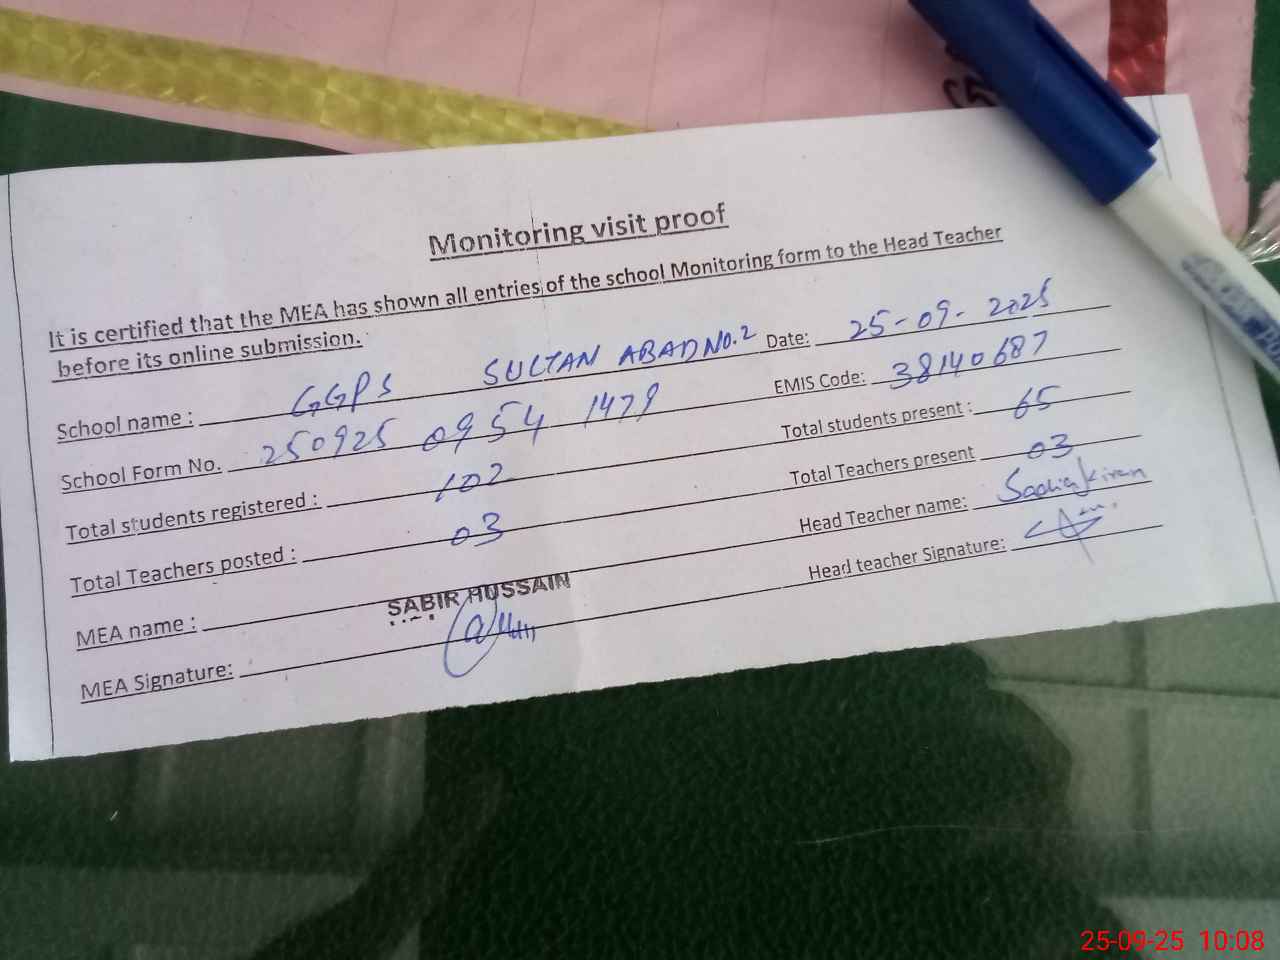 Monitoring visit proof
It is certified that the MEA has shown all entries of the school Monitoring form to the Head Teacher
before its online submission.
School name : GGPS SULTAN ABAD NO.2 Date: 25-09-2025
School Form No. 250925 0954 1479 EMIS Code: 38140687
Total students registered : 102 Total students present : 65
Total Teachers posted : 03 Total Teachers present 03
MEA name : SABIR HUSSAIN Head Teacher name: Sadia Kiran
MEA Signature: Head teacher Signature:
25-09-25 10:08